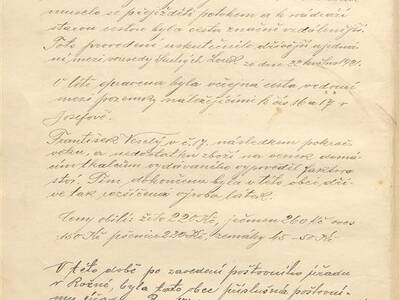 muselo se přejížděti potokem a k nádraží
starou cestou byla cesta značně vzdálenější.
Toto provedení uskutečnilo dřívější ujednání
mezi sousedy Luk ze dne 22 května 1921.
V létě opravena byla veřejná cesta vedoucí
mezi pozemky náležejícími k čís 16 a 17 v
Josefově.
František Veselý v č. 17. následkem pokračo
a nedostatku zboží na venek domá
cím tkalcům vydávaného vypověděl faktor
ství. Tím dokončena byla v této obci dří
ve tak rozšířená výroba látek.
Ceny obilí: žito 220 Kč, ječmen 260 Kč oves
150 Kč pšenice 220 Kč, zemáky 45-50 Kč
V této době po zavedení poštovního úřadu
v Rožné, byla tato obec příslušná poštovní
mu